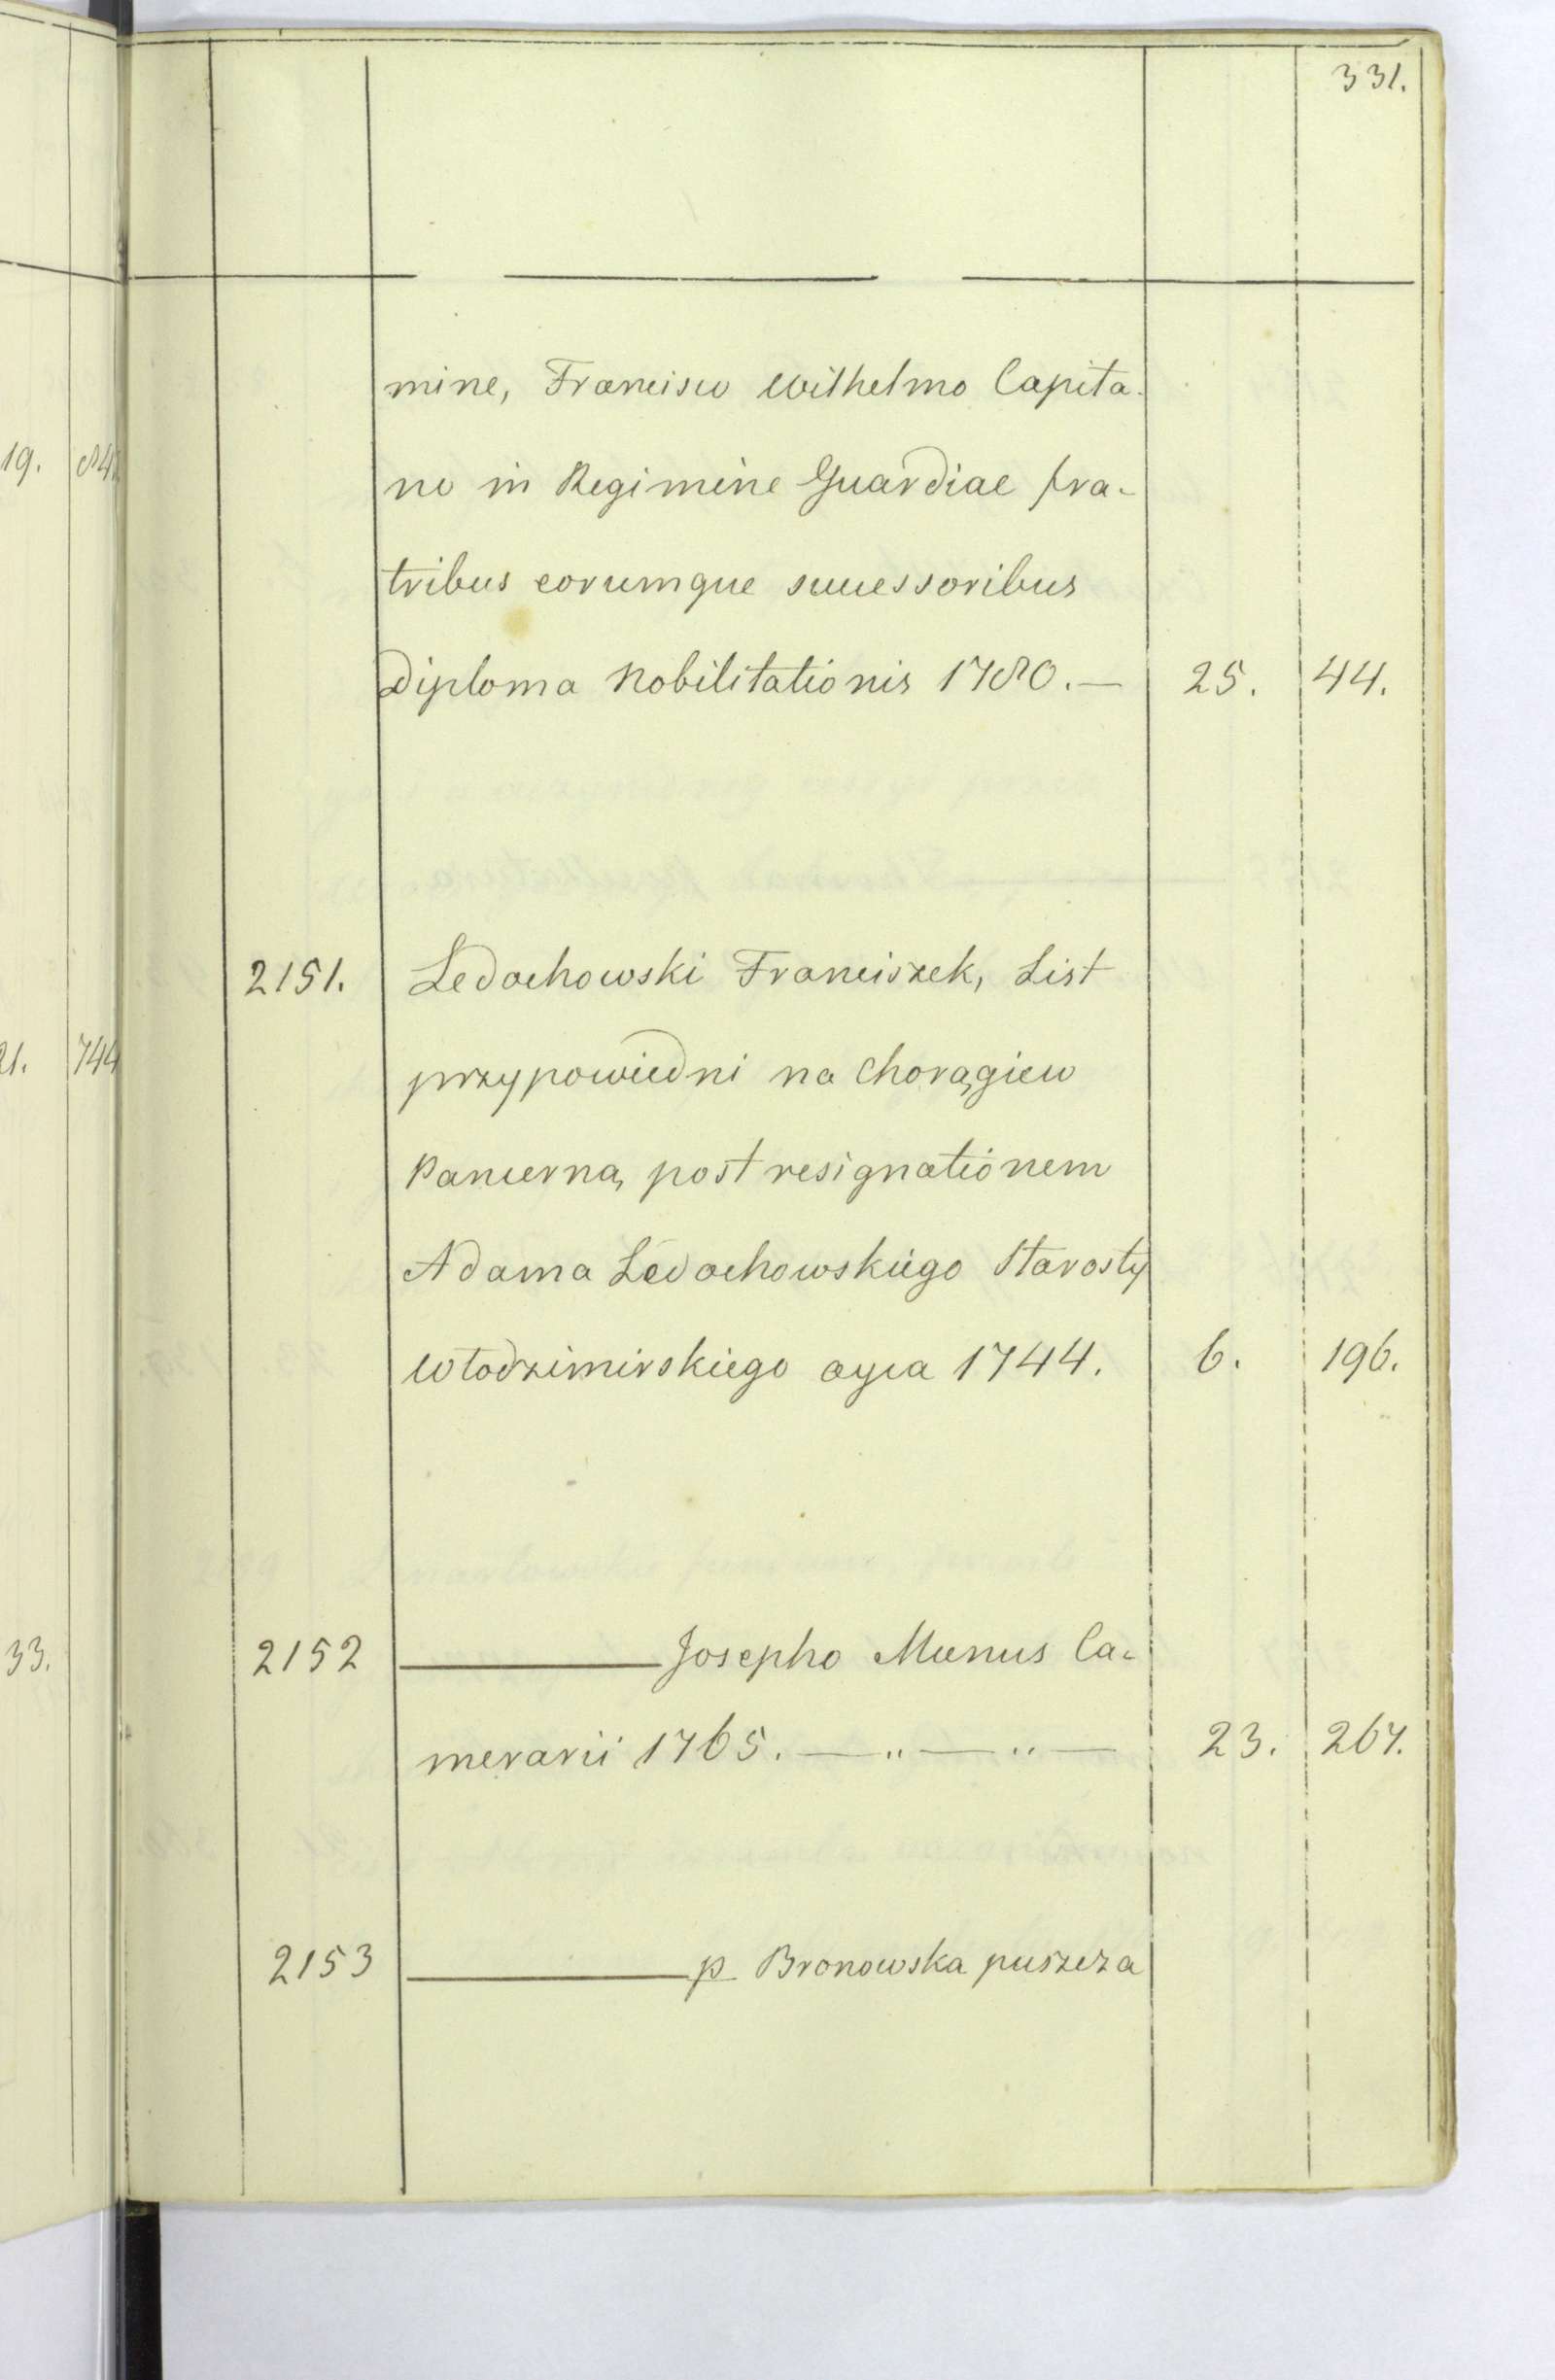 331.
mine, Francisco Wilhelmo Capita-
no in Regimine Guardiae fra-
tribus eorumque successoribus
Diploma Nobilitationis 1780. — 25. 44.
2151. Ledochowski Franciszek, List
przypowiedni na Chorągiew
Pancerną post resignationem
Adama Ledochowskiego Starosty
Włodzimirskiego oyca 1744. 6. 196.
2152 ——— Josepho Munus Ca-
merarii 1765. — „ — „ — 23. 267.
2153 ——— p Bronowska puszcza
19.
21. 744
33.